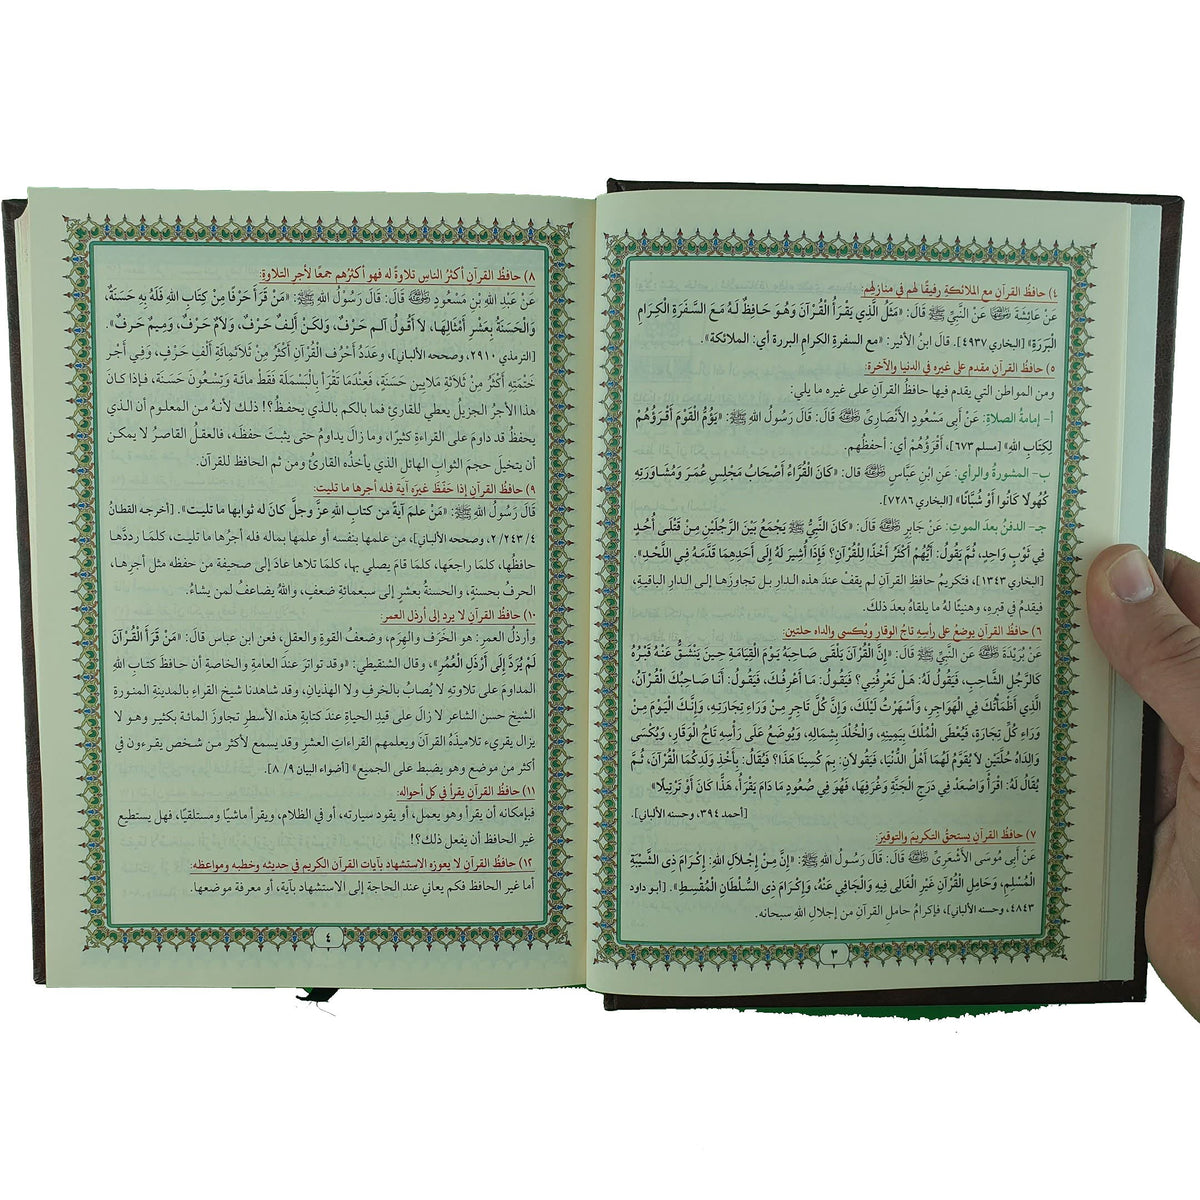 ٤) حافظُ القرآنِ مع الملائكةِ رفيقًا لهم في منازلِهم:
عَنْ عَائِشَةَ ﵂ عَنْ النَّبِيِّ ﷺ قَالَ: «مَثَلُ الَّذِي يَقْرَأُ الْقُرْآنَ وَهُوَ حَافِظٌ لَهُ مَعَ السَّفَرَةِ الْكِرَامِ
الْبَرَرَةِ» [البخاري ٤٩٣٧]. قال ابنُ الأثير: «مع السفرةِ الكرامِ البررة أي: الملائكة».
٥) حافظُ القرآنِ مقدم على غيره في الدنيا والآخرة:
ومن المواطنِ التي يقدم فيها حافظُ القرآنِ على غيره ما يلي:
أ- إمامةُ الصلاةِ: عَنْ أَبِي مَسْعُودٍ الأَنْصَارِيِّ ﵁ قَالَ: قَالَ رَسُولُ اللهِ ﷺ: «يَؤُمُّ الْقَوْمَ أَقْرَؤُهُمْ
لِكِتَابِ اللهِ» [مسلم ٦٧٣]، أَقْرَؤُهُمْ أي: أحفظُهم.
ب- المشورةُ والرأي: عَنِ ابْنِ عَبَّاسٍ ﵁ قال: «كَانَ الْقُرَّاءُ أَصْحَابُ مَجْلِسِ عُمَرَ وَمُشَاوَرَتِهِ
كُهُولًا كَانُوا أَوْ شُبَّانًا» [البخاري ٧٢٨٦].
جـ- الدفنُ بعدَ الموتِ: عَنْ جَابِرٍ ﵁ قَالَ: «كَانَ النَّبِيُّ ﷺ يَجْمَعُ بَيْنَ الرَّجُلَيْنِ مِنْ قَتْلَى أُحُدٍ
فِي ثَوْبٍ وَاحِدٍ، ثُمَّ يَقُولُ: أَيُّهُمْ أَكْثَرُ أَخْذًا لِلْقُرْآنِ؟ فَإِذَا أُشِيرَ لَهُ إِلَى أَحَدِهِمَا قَدَّمَهُ فِي اللَّحْدِ».
[البخاري ١٣٤٣]، فتكريمُ حافظِ القرآنِ لم يقفْ عندَ هذه الدارِ بل تجاوزَها إلى الدارِ الباقيةِ،
فيقدمُ في قبره، وهنيئًا لهُ ما يلقاهُ بعدَ ذلك.
٦) حافظُ القرآنِ يوضعُ على رأسِهِ تاجُ الوقارِ ويُكسى والداه حلتين:
عَنْ بُرَيْدَةَ ﵁ عَنِ النَّبِيِّ ﷺ قَالَ: «إِنَّ الْقُرْآنَ يَلْقَى صَاحِبَهُ يَوْمَ الْقِيَامَةِ حِينَ يَنْشَقُّ عَنْهُ قَبْرُهُ
كَالرَّجُلِ الشَّاحِبِ، فَيَقُولُ لَهُ: هَلْ تَعْرِفُنِي؟ فَيَقُولُ: مَا أَعْرِفُكَ، فَيَقُولُ: أَنَا صَاحِبُكَ الْقُرْآنُ،
الَّذِي أَظْمَأْتُكَ فِي الْهَوَاجِرِ، وَأَسْهَرْتُ لَيْلَكَ، وَإِنَّ كُلَّ تَاجِرٍ مِنْ وَرَاءِ تِجَارَتِهِ، وَإِنَّكَ الْيَوْمَ مِنْ
وَرَاءِ كُلِّ تِجَارَةٍ، فَيُعْطَى الْمُلْكَ بِيَمِينِهِ، وَالْخُلْدَ بِشِمَالِهِ، وَيُوضَعُ عَلَى رَأْسِهِ تَاجُ الْوَقَارِ، وَيُكْسَى
وَالِدَاهُ حُلَّتَيْنِ لَا يُقَوَّمُ لَهُمَا أَهْلُ الدُّنْيَا، فَيَقُولَانِ: بِمَ كُسِينَا هَذَا؟ فَيُقَالُ: بِأَخْذِ وَلَدِكُمَا الْقُرْآنَ، ثُمَّ
يُقَالُ لَهُ: اقْرَأْ وَاصْعَدْ فِي دَرَجِ الْجَنَّةِ وَغُرَفِهَا، فَهُوَ فِي صُعُودٍ مَا دَامَ يَقْرَأُ، هَذًّا كَانَ أَوْ تَرْتِيلًا»
[أحمد ٣٩٤، وحسنه الألباني].
٧) حافظُ القرآنِ يستحقُ التكريمَ والتوقيرَ:
عَنْ أَبِي مُوسَى الأَشْعَرِيِّ ﵁ قَالَ: قَالَ رَسُولُ اللهِ ﷺ: «إِنَّ مِنْ إِجْلَالِ اللهِ: إِكْرَامَ ذِي الشَّيْبَةِ
الْمُسْلِمِ، وَحَامِلِ الْقُرْآنِ غَيْرِ الْغَالِي فِيهِ وَالْجَافِي عَنْهُ، وَإِكْرَامَ ذِي السُّلْطَانِ الْمُقْسِطِ». [أبو داود
٤٨٤٣، وحسنه الألباني]، فإكرامُ حاملِ القرآنِ من إجلالِ اللهِ سبحانه.
٣
٨) حافظُ القرآنِ أكثرُ الناسِ تلاوةً له فهو أكثرُهم جمعًا لأجرِ التلاوةِ:
عَنْ عَبْدِ اللهِ بْنِ مَسْعُودٍ ﵁ قَالَ: قَالَ رَسُولُ اللهِ ﷺ: «مَنْ قَرَأَ حَرْفًا مِنْ كِتَابِ اللهِ فَلَهُ بِهِ حَسَنَةٌ،
وَالْحَسَنَةُ بِعَشْرِ أَمْثَالِهَا، لَا أَقُولُ آلـم حَرْفٌ، وَلَكِنْ أَلِفٌ حَرْفٌ، وَلَامٌ حَرْفٌ، وَمِيمٌ حَرفٌ».
[الترمذي ٢٩١٠، وصححه الألباني]، وعَدَدُ أَحْرُفِ الْقُرْآنِ أَكْثَرُ مِنْ ثَلَاثِمِائَةِ أَلْفِ حَرْفٍ، وَفِي أَجْرِ
خَتْمَتِهِ أَكْثَرُ مِنْ ثَلَاثَةِ مَلَايِينِ حَسَنَةٍ، فَعِنْدَمَا تَقْرَأُ بِالْبَسْمَلَةِ فَقَطْ مائة وَتِسْعُونَ حَسَنَةً، فإذا كان
هذا الأجرُ الجزيلُ يعطى للقارئ فما بالكم بالذي يحفظُ؟! ذلك لأنهُ من المعلوم أن الذي
يحفظُ قد داومَ على القراءةِ كثيرًا، وما زالَ يداومُ حتى يثبتَ حفظَه، فالعقلُ القاصرُ لا يمكن
أن يتخيلَ حجمَ الثوابِ الهائلِ الذي يأخذُه القارئُ ومن ثم الحافظ للقرآن.
٩) حافظُ القرآنِ إذا حَفَّظَ غيرَه آيةً فله أجرُها ما تليت:
قَالَ رَسُولُ اللهِ ﷺ: «مَنْ علمَ آيةً من كتابِ اللهِ عزَّ وجلَّ كانَ له ثوابها ما تليت». [أخرجه القطان
٤/ ٢٤٣/٢، وصححه الألباني]، من علمها بنفسه أو علمها بماله فله أجرُها ما تليت، كلمَا رددَّها
حافظُها، كلمَا راجعَها، كلمَا قامَ يصلي بها، كلمَا تلاها عادَ إلى صحيفة من حفظه مثل أجرِها،
الحرفُ بحسنةٍ، والحسنةُ بعشرٍ إلى سبعمائةِ ضعفٍ، واللهُ يضاعفُ لمن يشاءُ.
١٠) حافظُ القرآنِ لا يردُ إلى أرذلِ العمرِ:
وأرذلُ العمرِ: هو الخَرَف والهَرَم، وضعفُ القوةِ والعقلِ، فعن ابن عباس قالَ: «مَنْ قَرَأَ الْقُرْآنَ
لَمْ يُرَدَّ إِلَى أَرْذَلِ الْعُمُرِ»، وقال الشنقيطي: «وقد تواترَ عندَ العامةِ والخاصةِ أن حافظَ كتابِ اللهِ
المداومَ على تلاوتِه لا يُصابُ بالخرفِ ولا الهذيانِ، وقد شاهدنا شيخَ القراءِ بالمدينةِ المنورةِ
الشيخ حسن الشاعر لا زالَ على قيدِ الحياةِ عندَ كتابةِ هذه الأسطرِ تجاوزَ المائةَ بكثير وهو لا
يزال يقريء تلاميذَهُ القرآنَ ويعلمهم القراءاتِ العشرِ وقد يسمع لأكثر من شخص يقرءون في
أكثر من موضع وهو يضبط على الجميع» [أضواء البيان ٩/ ٨].
١١) حافظُ القرآنِ يقرأُ في كلِ أحوالِه:
فبإمكانه أن يقرأ وهو يعمل، أو يقود سيارته، أو في الظلام، ويقرأ ماشيًا ومستلقيًا، فهل يستطيع
غير الحافظ أن يفعل ذلك؟!
١٢) حافظُ القرآنِ لا يعوزه الاستشهاد بآيات القرآن الكريم في حديثه وخطبه ومواعظه:
أما غير الحافظ فكم يعاني عند الحاجة إلى الاستشهاد بآية، أو معرفة موضعها.
٤